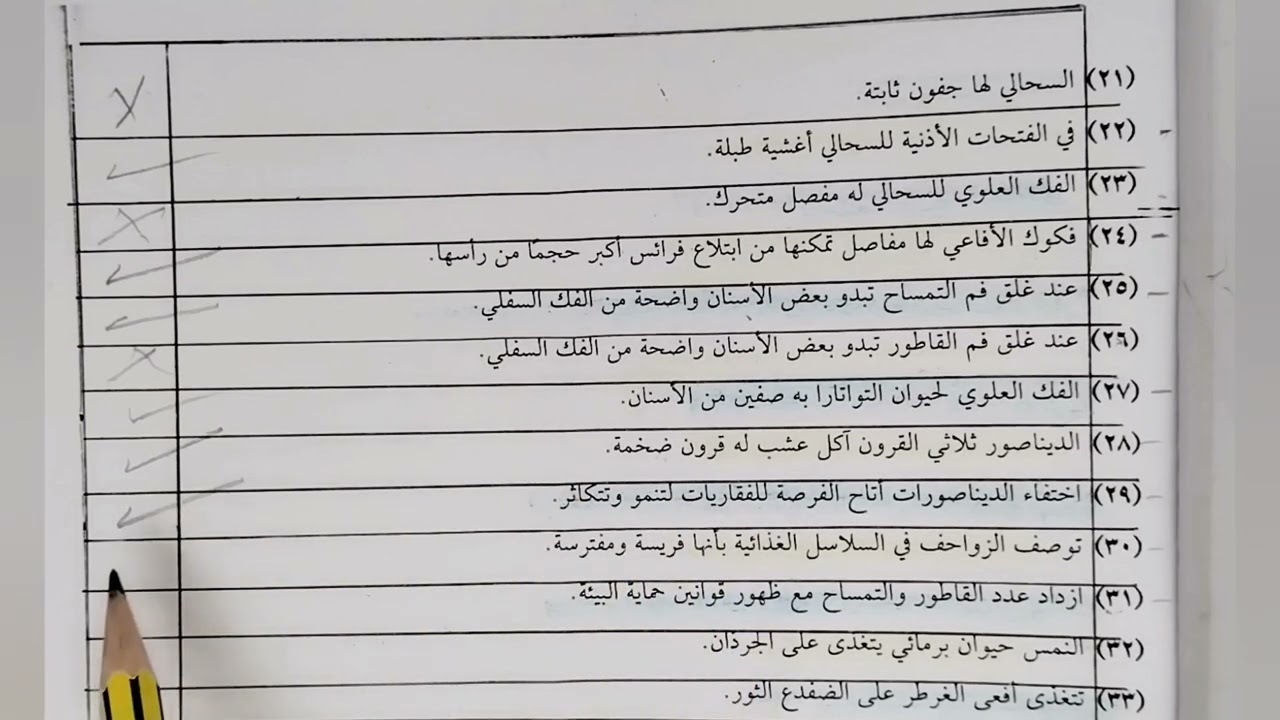 (٢١) السحالي لها جفون ثابتة. X
(٢٢) في الفتحات الأذنية للسحالي أغشية طبلة. ✓
(٢٣) الفك العلوي للسحالي له مفصل متحرك. X
(٢٤) فكوك الأفاعي لها مفاصل تمكنها من ابتلاع فرائس أكبر حجمًا من رأسها. ✓
(٢٥) عند غلق فم التمساح تبدو بعض الأسنان واضحة من الفك السفلي. ✓
(٢٦) عند غلق فم القاطور تبدو بعض الأسنان واضحة من الفك السفلي. X
(٢٧) الفك العلوي لحيوان التواتارا به صفين من الأسنان. ✓
(٢٨) الديناصور ثلاثي القرون آكل عشب له قرون ضخمة. ✓
(٢٩) اختفاء الديناصورات أتاح الفرصة للفقاريات لتنمو وتتكاثر. ✓
(٣٠) توصف الزواحف في السلاسل الغذائية بأنها فريسة ومفترسة.
(٣١) ازداد عدد القاطور والتمساح مع ظهور قوانين حماية البيئة.
(٣٢) النمس حيوان برمائي يتغذى على الجرذان.
(٣٣) تتغذى أفعى الغرطر على الضفدع الثور.